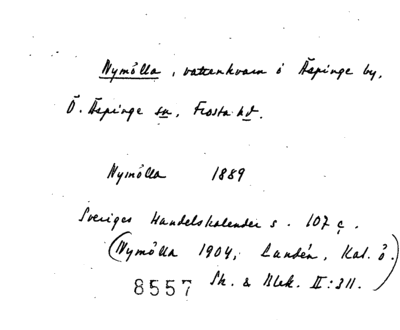 Nymölla, vattenkvarn i Äspinge by,
Ö. Äspinge sn, Frosta hd.
Nymölla 1889
Sveriges Handelskalender s. 107 c.
(Nymölla 1904, Lundén, Kat. ö.
Sk. & Blek. II:311.)
8557